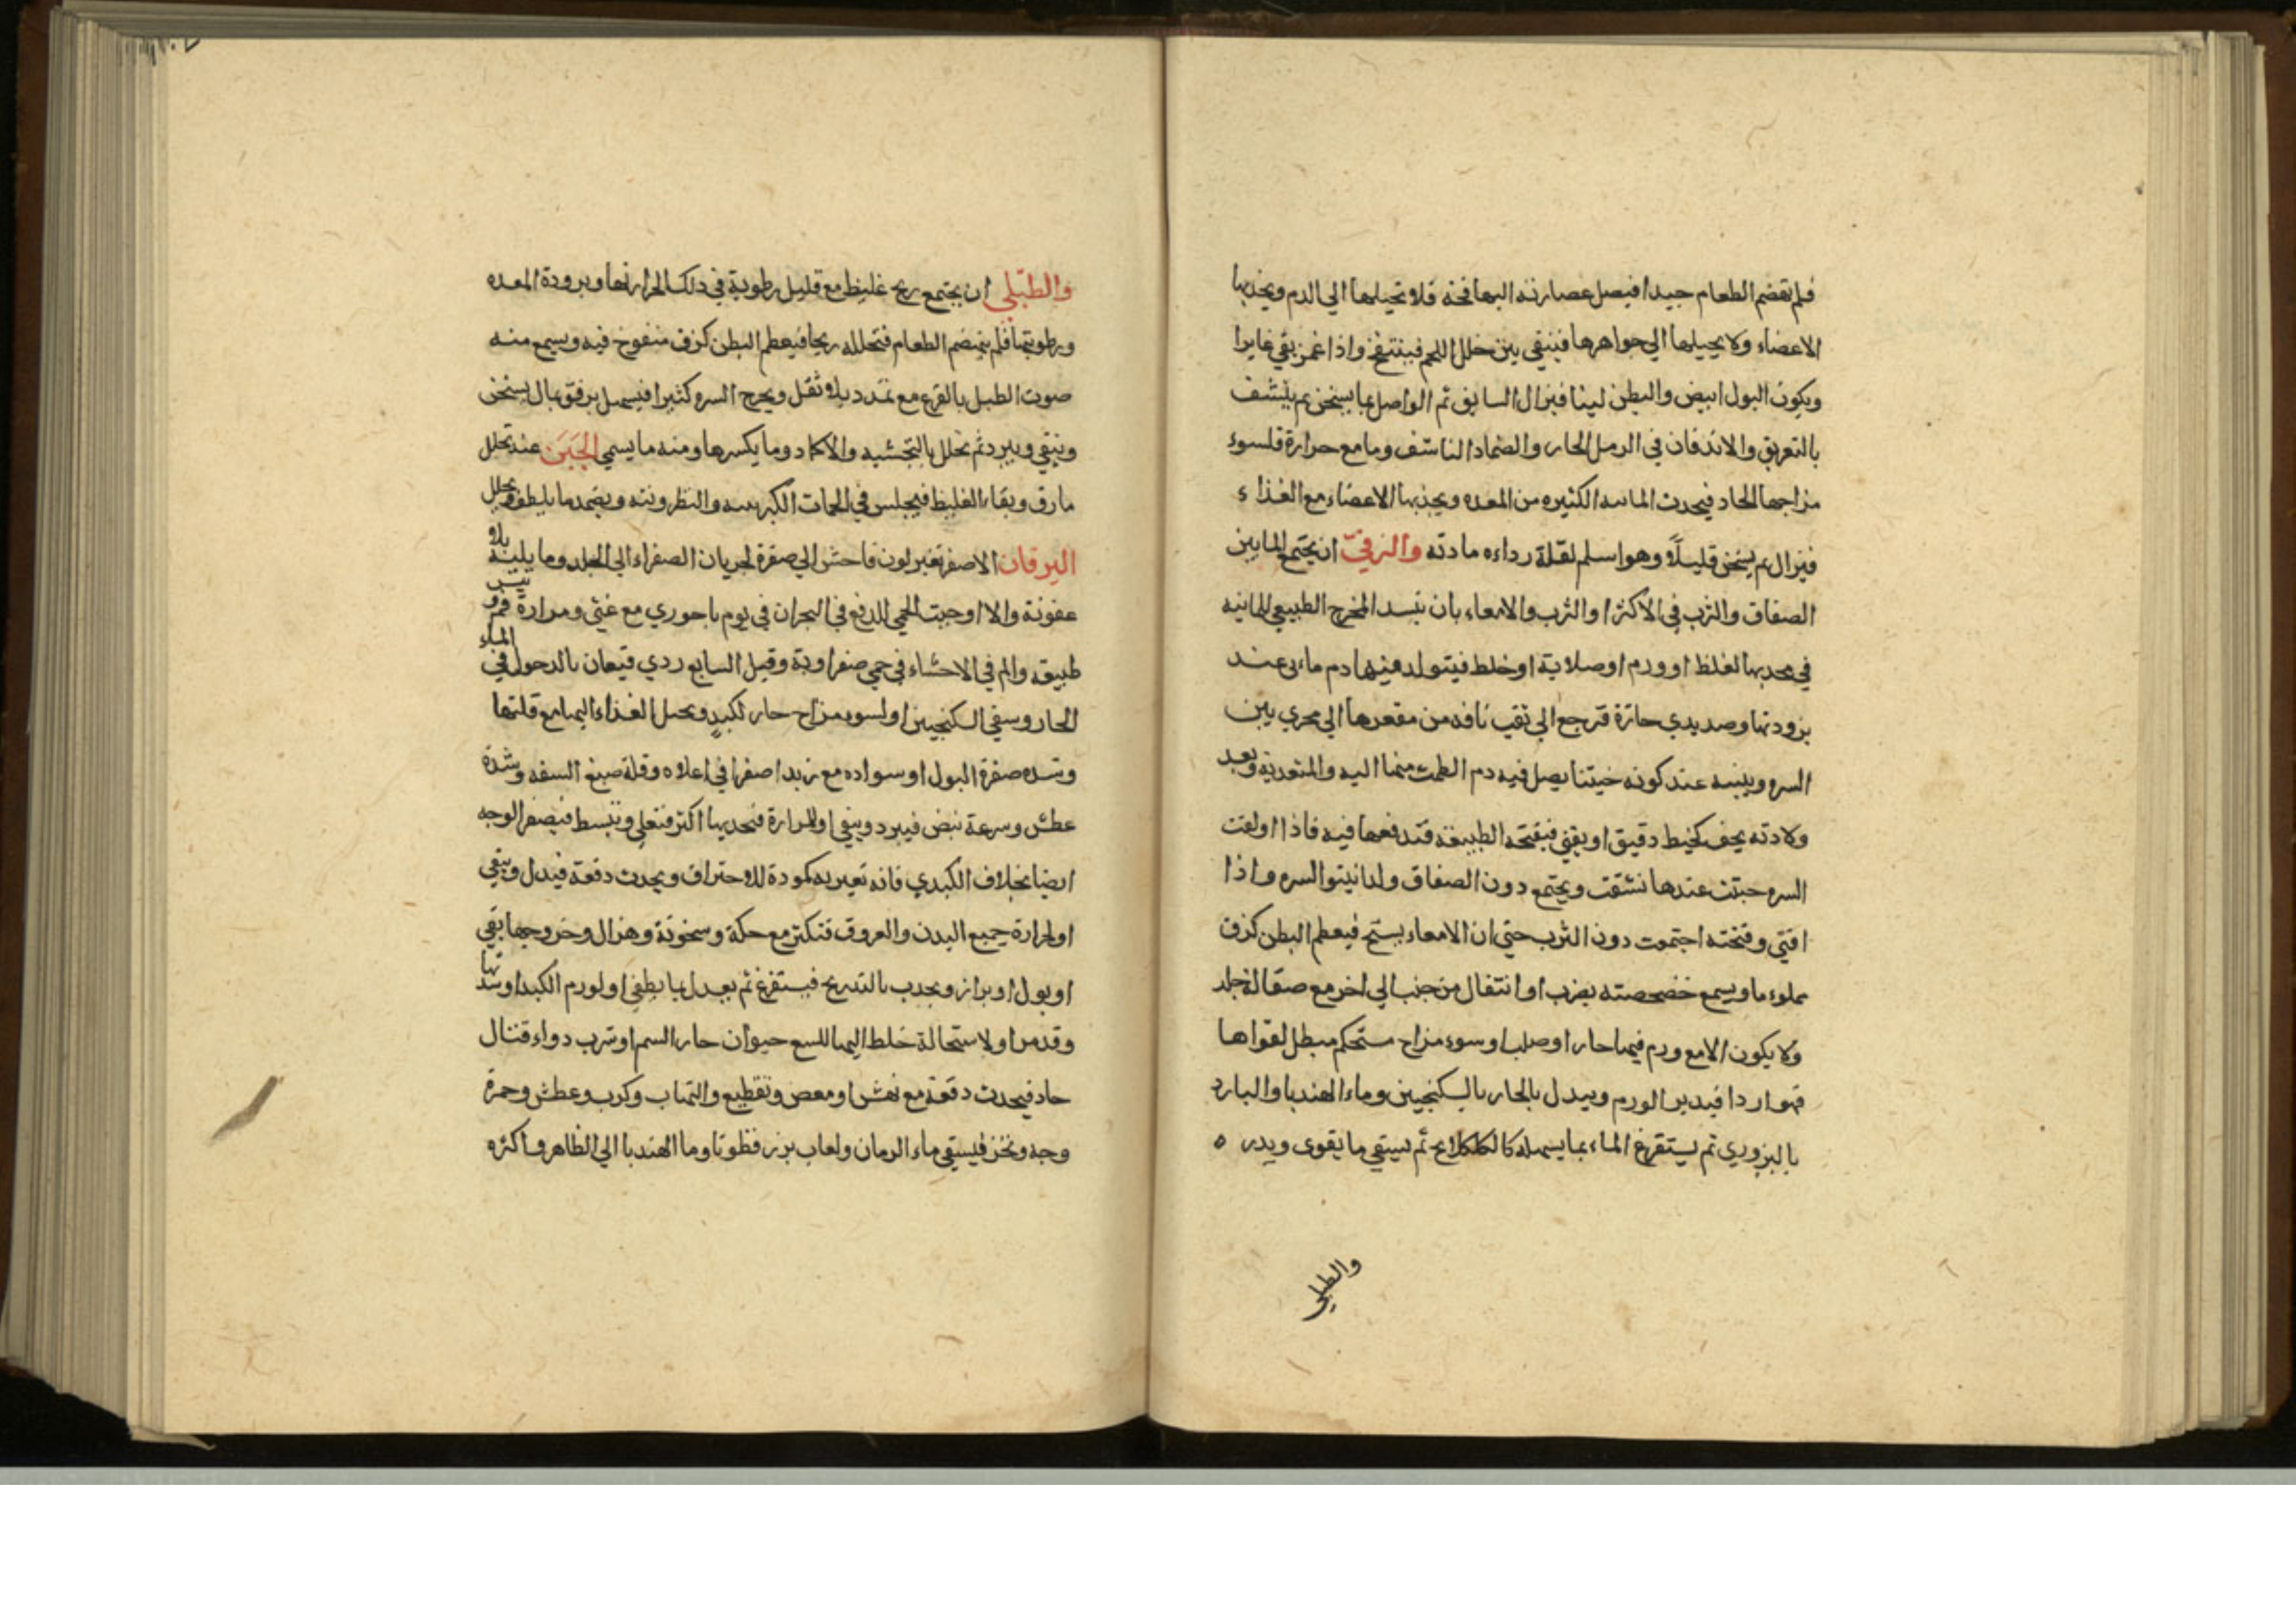 فلم تهضم الطعام جيدا فيصل عصارته اليها فجة فلا تحيلها الي الدم ويجذبها
الاعضاء ولا يحيلها الي جواهرها فينقي بين خلل اللحم فينتفخ واذا غمز بقي غايرا
ويكون البول ابيض والبطن لينا فيزال السابق ثم الواصل بما يسخن ثم ينشف
بالتعريق والاندفان في الرمل الحار والضماد الناشف وما مع حرارة فلسوء
مزاجها الحاد فيحدث المائيه الكثيره من المعده ويجذبها الاعضاء مع الغذاء
فيزال ثم يسخن قليلًا وهو اسلم لقلة رداءه مادته والزقيّ ان يجتمع الما بين
الصفاق والثرب في الاكثر او الثرب والامعاء بان ينسد المخرج الطبيعي للمائيه
في محدبها لغلظ او ورم او صلابة او خلط فيتولد فيها دم مائي عند
برودتها وصديدي حارة فترجع الي ثقب نافذ من مقعرها الي مجري بين
السره وبينه عند كونه جنينا يصل فيه دم الطمث منها اليه والمتغذية وبعد
ولادته يجف كخيط دقيق او يفني فيفتحه الطبيعة فتدفعها فيه فاذا اولفت
السره حبتت عندها نشقت ويجتمع دون الصفاق ولذا نيتو السره واذا
افتي وفتحته اجتمعت دون الثرب حتي ان الامعاء يستح فيعظم البطن كزق
مملوء ماء ويسمع خضخضته بضرب او انتقال من جنب الي اخر مع صقالة جلد
ولا يكون الا مع ورم فيها حار او صلب او سوء مزاج مستحكم مبطل لقواها
فهو اردا فيدبر الورم ويبدل بالحار بالسكنجبين وماء الهندبا والبارد
بالبزوري ثم يستفرغ الماء بما يسهله كالكلكلانج ثم يسقي ما يقوى ويدر ه
والطبلي
والطبّلي ان يجتمع ريح غليظ مع قليل رطوبة في ذلك لحرارتها وبرودة المعده
ورطوبتها فلم ينهضم الطعام فتحلله ريحا فيعظم البطن كزق منفوخ فيه ويسمع منه
صوت الطبل بالقرع مع تمدد بلا ثقل ويخرج السره كثيرا فيسهل برفق بما لا يسخن
وينقي ويبرد ثم تحلل بالتجشيه والاكماد وما يكسرها ومنه ما يسمي الجَبَن عند تحلل
مارق وبقاء الغليظ فيجلس في الحمات الكبريتيه والنطرونيه ويضمد ما يلطف ويحلل
اليرقان الاصفر تغير لون فاحش الي صفرة لجريان الصفراء الي الجلد وما يليه بلا
عفونة والا اوجبت الحمي للدفع في البحران في يوم باحوري مع غثي ومرارة فم ويبس
طبيعه والم في الاحشاء في حمي صفراوية وقبل السابع ردي فيعان بالدخول في الماء
الحار وسقي السكنجبين او لسوء مزاج حار لكبدٍ ويحيل الغذاء اليها مع قلتها
وشده صفرة البول او سواده مع زبد اصفر في اعلاه وقلة صبغ السفه وشدة
عطش وسرعة نبض فيبرد وينقي او المرارة فتجذبها اكثر فتغلي وتنبسط فيصفر الوجه
ايضا بخلاف الكبدي فانه تغير به كمودة للاحتراق ويحدث دفعة فيبدل وينقي
او لحرارة جميع البدن والعروق فتكثر مع حكة وسخونة وهزال وخروجها بقي
او بول او براز ويجذب بالتدريج فيستفرغ ثم يعدل بما يطفي او لورم الكبد او شدتها
وقد مر او لاستحالة خلط اليها للسع حيوان حار السم او شرب دواء قتال
حاد فيحدث دفعة مع نهش او مغص وتقطيع والتهاب وكرب وعطش وحمرة
وجه ونخز فيسقي ماء الرمان ولعاب بزر قطونا وما الهندبا الي الظاهر واكثره